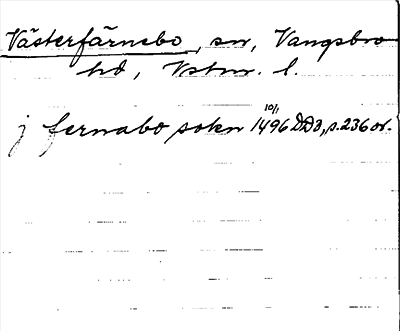 Västerfärnebo, sn, Vangsbro
hd, Vstm. l.
j fernabo sokn 10/1 1496 DD3, s. 236 or.